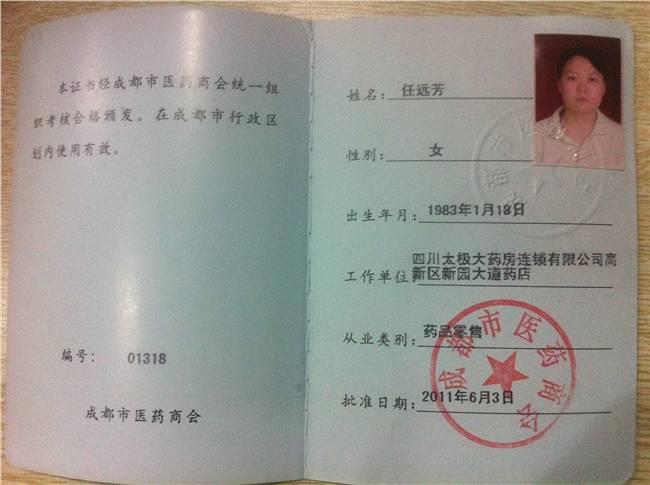 本证书经成都市医药商会统一组
织考核合格颁发。在成都市行政区
划内使用有效。
编号： 01318
成都市医药商会
姓名： 任远芳
性别： 女
出生年月： 1983年1月18日
工作单位： 四川太极大药房连锁有限公司高
新区新园大道药店
从业类别： 药品零售
批准日期： 2011年6月3日
成都市医药商会